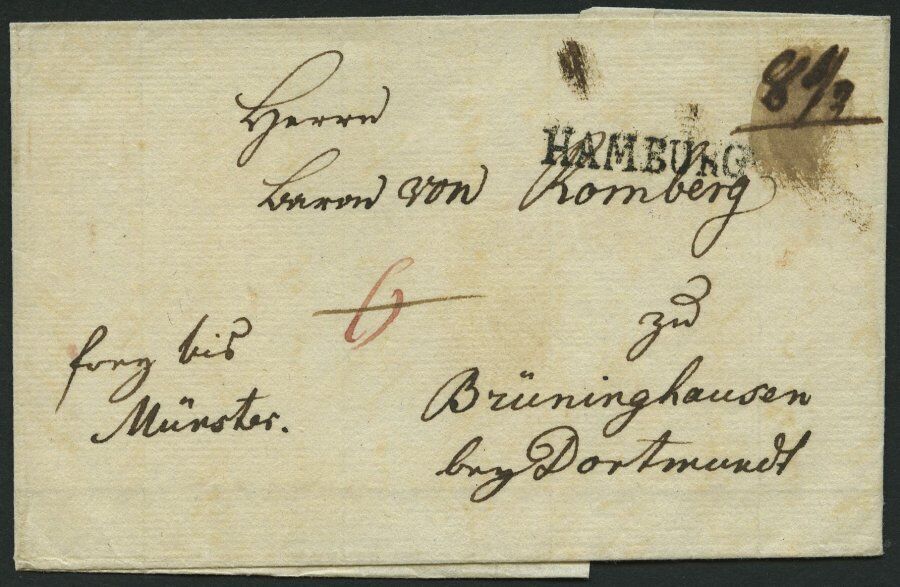 8 1/2
HAMBURG
Herrn
Baron von Romberg
6
zu
franz bis
Münster.
Brüninghausen
bey Dortmundt